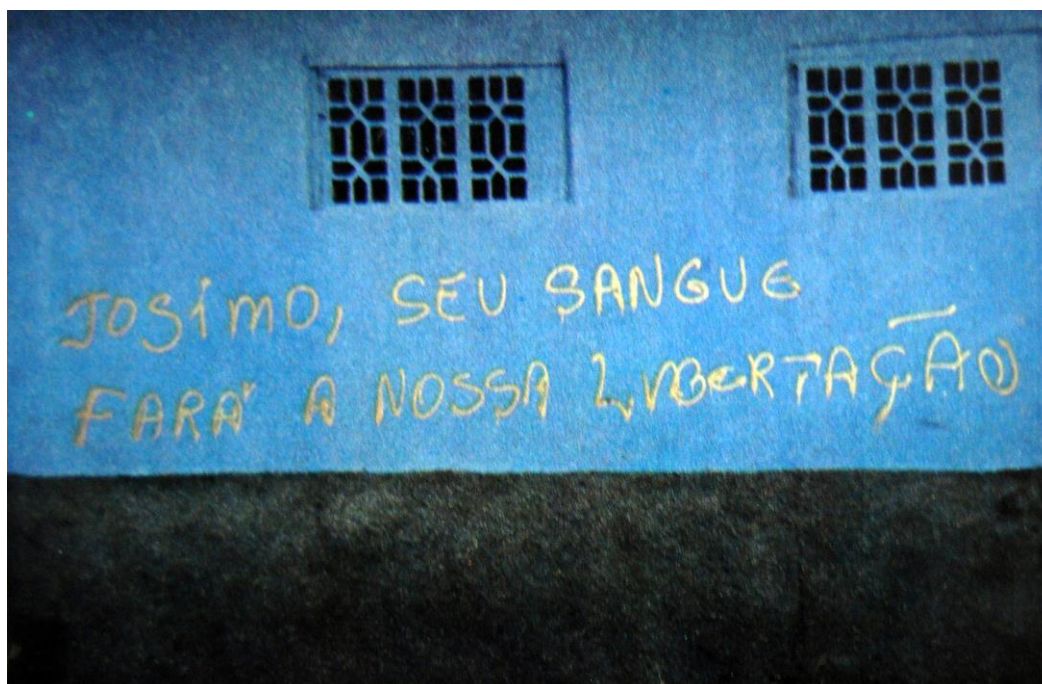 JOSÍMO, SEU SANGUE
FARÁ A NOSSA LIBERTAÇÃO